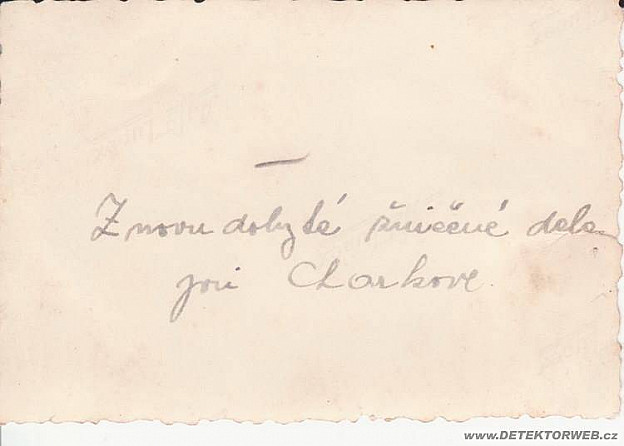 Znovu dobyté zničené delo
pri Charkove.
www.DETEKTORWEB.cz